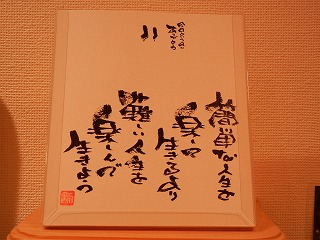 簡単な人生を
生きるより
難しい人生を
楽しんで
生きよう